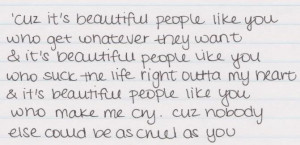 'cuz it's beautiful people like you
who get whatever they want
& it's beautiful people like you
who suck the life right outta my heart
& it's beautiful people like you
who make me cry. cuz nobody
else could be as cruel as you